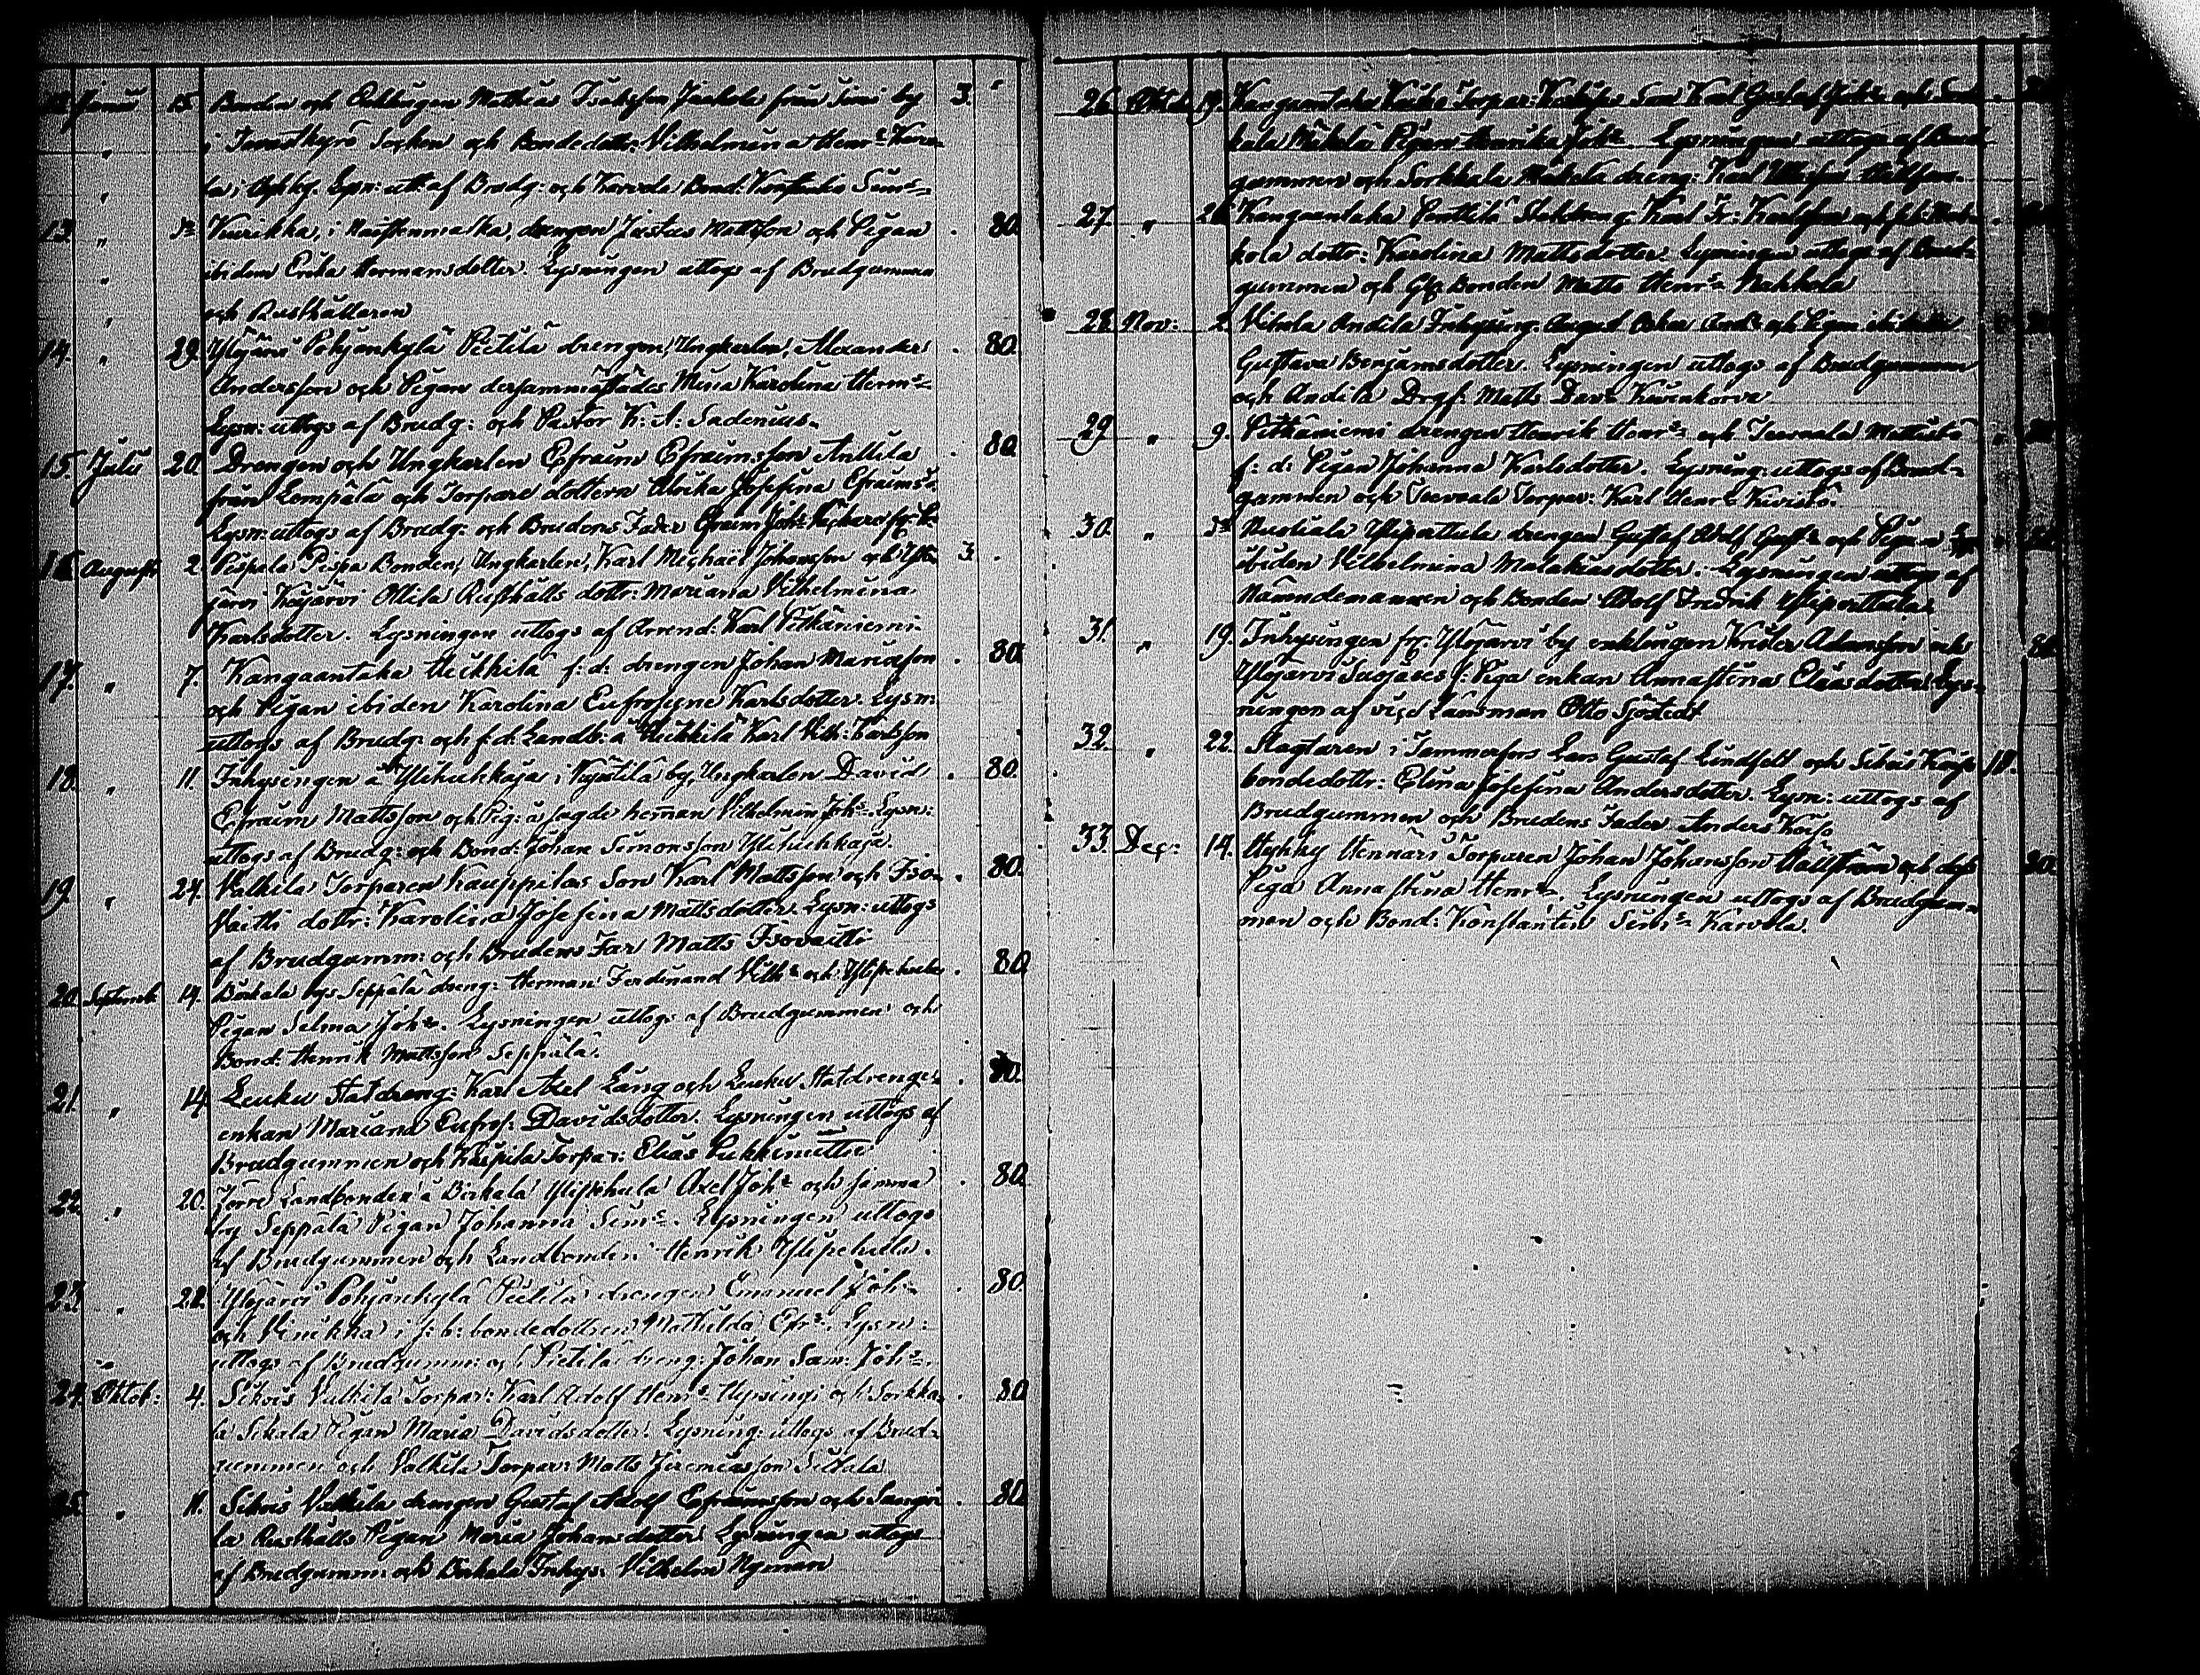 12. Junii 15. Bonden och Enklingen Mathias Isaksson Jaakola från Simi by 3. "
" i Tavastkyrö Socken och Bondedottr: Vilhelmina Henrs: Karvo-
" la i Hyhky. Lysn: utt af Brudg: och Karvola Bond: Konstantin Sims:
13. " Dn Vinikka, i Haikenmatka, drengen Justus Mattsson och Pigan . 80.
" ibidem Erika Hermansdotter. Lysningen uttogs af Brudgummen
" och Rusthållaren
14. " 29. Ylöjärvi Pohjankylä Pietilä drengen, Ungkarlen, Alexander . 80.
Andersson och Pigan dersammastädes Maria Karolina Herms:
Lysn: uttogs af Brudg: och Pastor K: A: Sadenius.
15. Julii 20. Drengen och Ungkarlen Efraim Efraimsson Anttila . 80.
från Lempälä och Torpare dottern Ulrika Josefina Efraimsd.
Lysn: uttogs af Brudg: och Brudens Fader Efraim Joh:
16. August 2. Pispala Pispa Bonden, Ungkarlen, Karl Michael Johansson och Ylö- 3. .
järvi Keijärvi Ollila Rusthålls dottr: Mariana Vilhelmina
Karlsdotter. Lysningen uttogs af Arrend: Karl Pitkäniemi.
17. " 7. Kangaantaka Heikkilä f: d: drengen Johan Mariasson . 80.
och Pigan ibiden Karolina Eufrosyne Karlsdotter. Lysn:
uttogs af Brudg: och f: d: Landb: å Heikkilä Karl Vilh: Karlsson
18. " 11. Inhysingen å Ylihuhkaja i Kyöstilä by, Ungkarlen David . 80.
Efraim Mattsson och Pig: å sagde heman Vilhelmin Joh: Lysn:
uttogs af Brudg: och Bond: Johan Simonsson Ylihuhkaja.
19. " 24. Valkila Torparen Kauppilas Son Karl Mattsson och Iso- . 80.
Vaitti dottr: Karolina Josefina Mattsdotter. Lysn: uttogs
af Brudgumm: och Brudens Far Matts Isovaitti
20. Septemb 14. Birkala bys Seppälä dreng: Herman Ferdinand Vilh: och Ylipehula . 80.
Pigan Selma Joh:. Lysningen uttogs af Brudgummen och
Bond: Henrik Mattsson Seppälä.
21. " 14. Leuku Statdreng: Karl Axel Lång och Leuku Statdrengs . 80.
enkan Mariana Eufros: Davidsdotter. Lysningen uttogs af
Brudgummen och Kaipila Torpar: Elias
22. " 20. Förre Landbonden å Birkala Ylipehula Axel Joh: och samma . 80.
by Seppälä Pigan Johanna Sims:. Lysningen uttogs
af Brudgummen och Landbonden Henrik Ylipehula.
23. " 28. Ylöjärvi Pohjankylä Pietilä drengen Emanuel Joh: . 80.
och Vinikka i f: b: bondedottren Mathilda Efr:. Lysn:
uttogs af Brudgumm: och Pietilä dreng: Johan Sam: Joh:.
24. Oktob: 4. Sikois Valkila Torpar: Karl Adolf Henrs: Hysing: och Sorkka- . 80.
la Sikala Pigan Maria Davidsdotter. Lysning: uttogs af Brud-
gummen och Valkila Torpar: Matts Jeremiasson
25. " 11. Sikois Valkila drengen Gustaf Adolf Efraimsson och Saapi- . 80.
la Rusthålls Pigan Maria Johansdotter Lysningen uttogs
af Brudgumm: och Birkala Inhys: Vilhelm Nyman
26. Oktob. 19. Kangaantaka Torpar: Son Karl Gustaf Joh: och Sork-
kala Mäkelä Pigan Henrika Joh: Lysningen uttogs af Brud-
gummen och Sorkkala Mäkelä dreng: Karl
27. " 26. Kangaantaka Penttilä Karl Fr: Karlsson och
kola dottr: Karolina Mattsdotter. Lysningen uttogs af Brud-
gummen och Bonden Matts Henrs:
28. Nov: 2. Vihola Andila Inhysing: August Oskar And: och Pigan ibidem
Gustava Benjamsdotter. Lysningen uttogs af Brudgummen
och Andila Matts Dav:
29. " 9. Pitkäniemi drengen Henrik Henrs: och
f: d: Pigan Johanna Karlsdotter. Lysning: uttogs af Brud-
gummen och Torpar: Karl Henrs: Kivistö.
30. " Dn drengen Gustaf Adolf Gust: och Pigan
ibiden Vilhelmina Malakiasdotter. Lysningen uttogs af
Nämndemannen och Bonden Adolf Fredrik
31. " 19. Inhysingen fr: Ylöjärvi by enklingen Krister Adamsson och
Ylöjärvi f: Piga enkan Annastina Eliasdotter Lys-
ningen af vice Länsman Otto Sjöstedt
32. " 22. Slagtaren i Tammerfors Lars Gustaf Lindfelt och Sikois Koiso 18.
bondedottr: Elina Josefina Andersdotter. Lysn: uttogs af
Brudgummen och Brudens Fader Anders Koiso
33. Dec: 14. Hyhky Hennäri Torparen Johan Johansson Hällström och dess 80.
Piga Annastina Henrs:. Lysningen uttogs af Brudgum-
men och Bond: Konstantin Sims: Karvola.